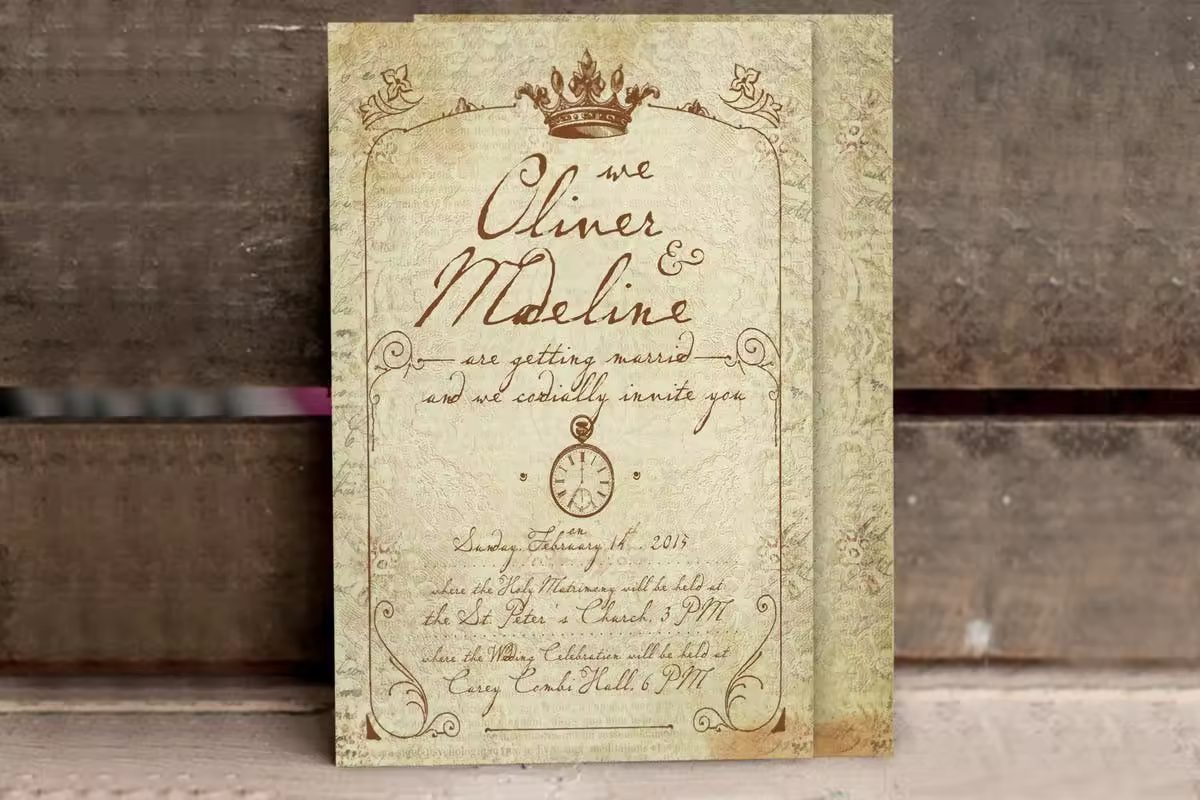 we
Oliver
&
Madeline
are getting married
and we cordially invite you
on
Sunday, February 14th, 2015
where the Holy Matrimony will be held at
the St. Peter's Church, 3 PM
where the Wedding Celebration will be held at
Carey Combi Hall, 6 PM